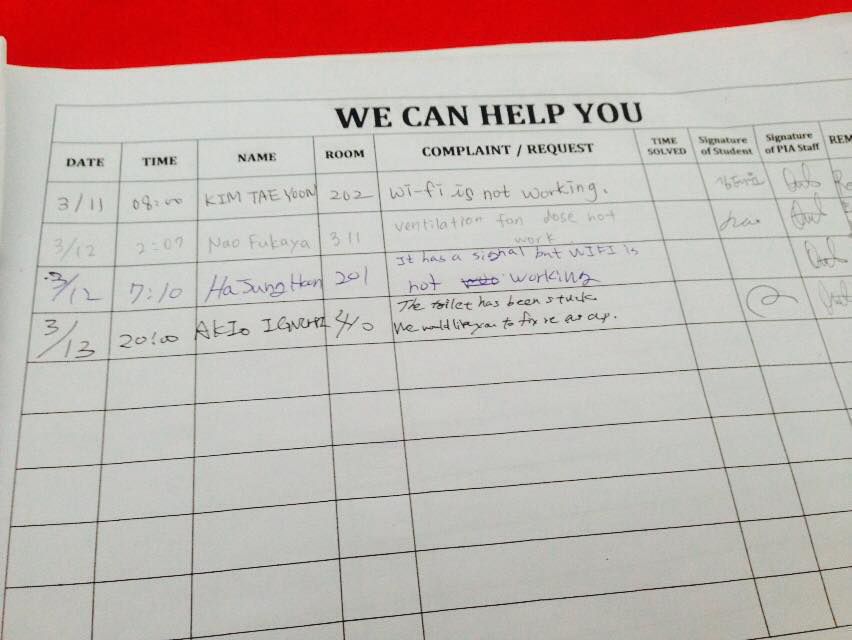 WE CAN HELP YOU
DATE TIME NAME ROOM COMPLAINT / REQUEST TIME SOLVED Signature of Student Signature of PIA Staff REM
3/11 08:00 KIM TAE YOON 202 Wi-fi is not working.
3/12 2:07 Nao Fukaya 311 ventilation fan dose not work
3/12 7:10 Ha Jung Han 201 It has a signal but WIFI is
not working
3/13 20:00 AKIO The toilet has been stuck
We would like you to fix